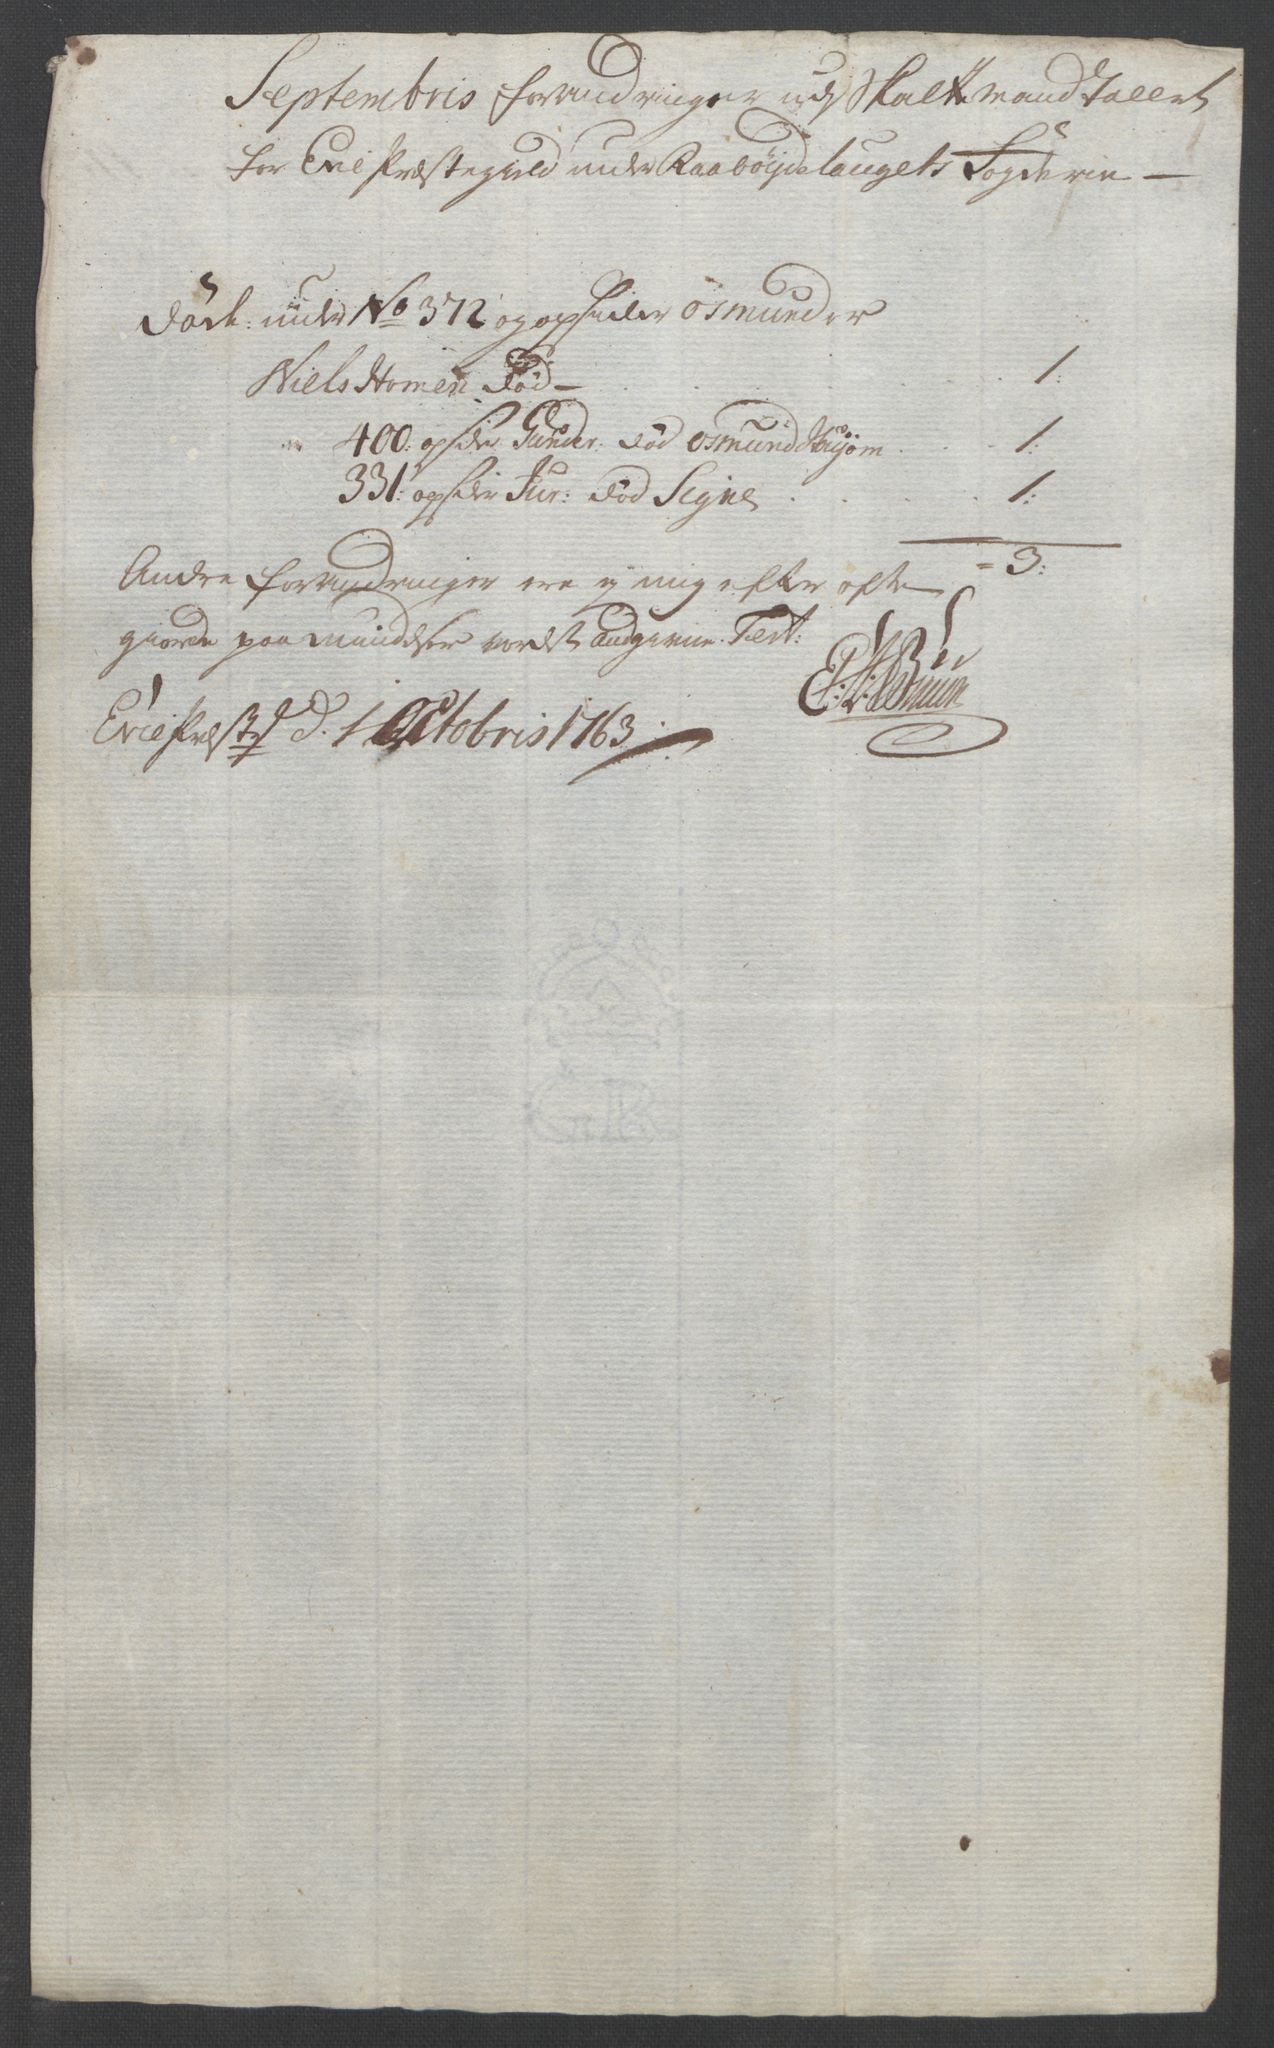 Septembris forandringer udj Skatte mandtallet
for Evie Præstegield under Raabøydelaugets Fogderie —
Døde: under No 372 og opsider Osmunder
Niels Homen død — 1:
400: opsider Gunder: død Osmund 1:
331: opsider Jur: død Signe 1:
= 3:
Andre forandringer ere ej mig efter ofte
giorde paa mindelser vorden Andgivne. Test:
Evie Præstegd d. 1 Octobris 1763.